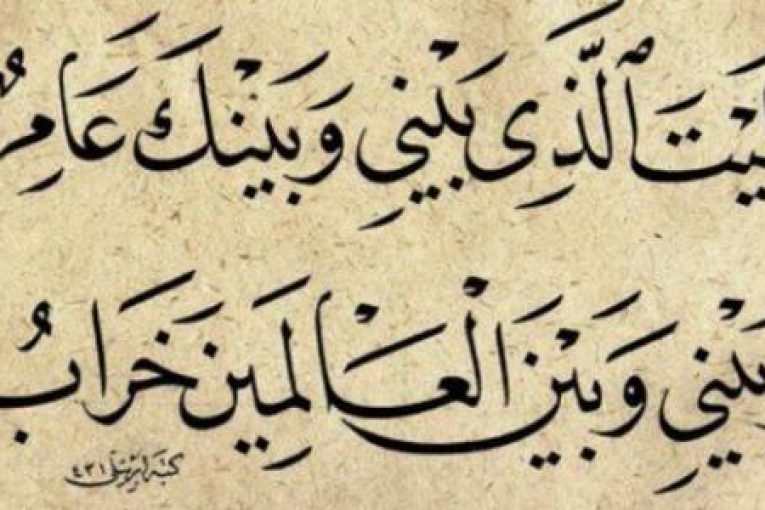 لَيْتَ ٱلَّذِي بَيْنِي وَبَيْنَكَ عَامِرٌ
بَيْنِي وَبَيْنَ الْعَالَمِينَ خَرَابُ